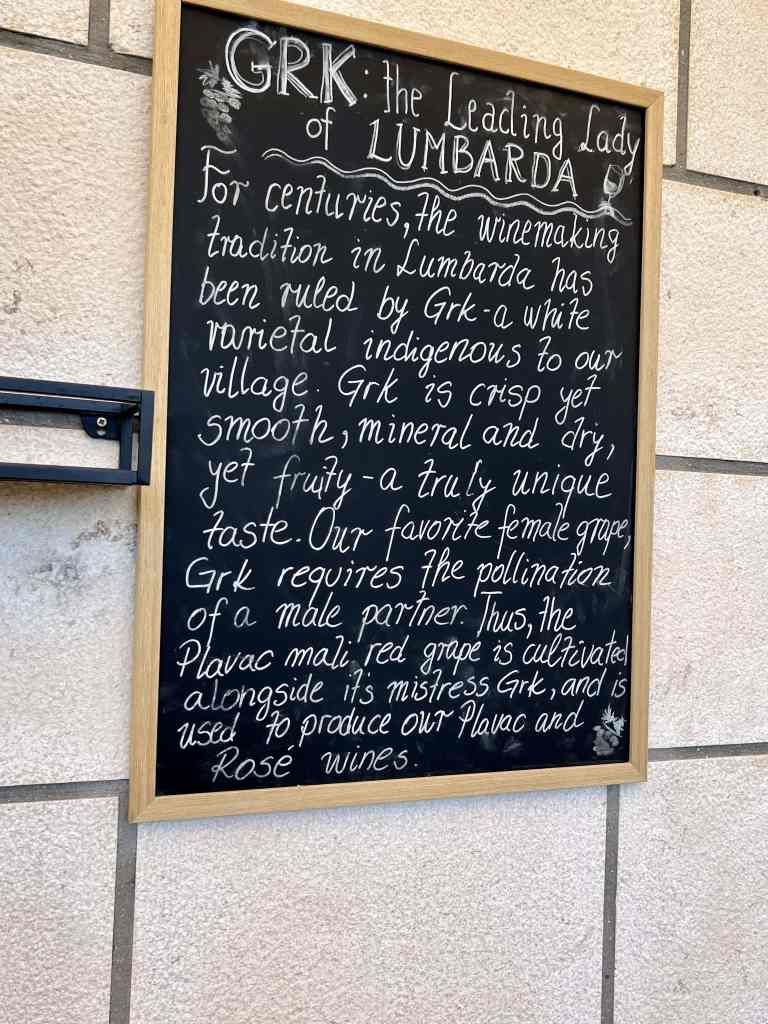 GRK: the Leading Lady
of LUMBARDA
For centuries, the winemaking
tradition in Lumbarda has
been ruled by Grk-a white
varietal indigenous to our
village. Grk is crisp yet
smooth, mineral and dry,
yet fruity-a truly unique
taste. Our favorite female grape,
Grk requires the pollination
of a male partner. Thus, the
Plavac mali red grape is cultivated
alongside its mistress Grk, and is
used to produce our Plavac and
Rosé wines.